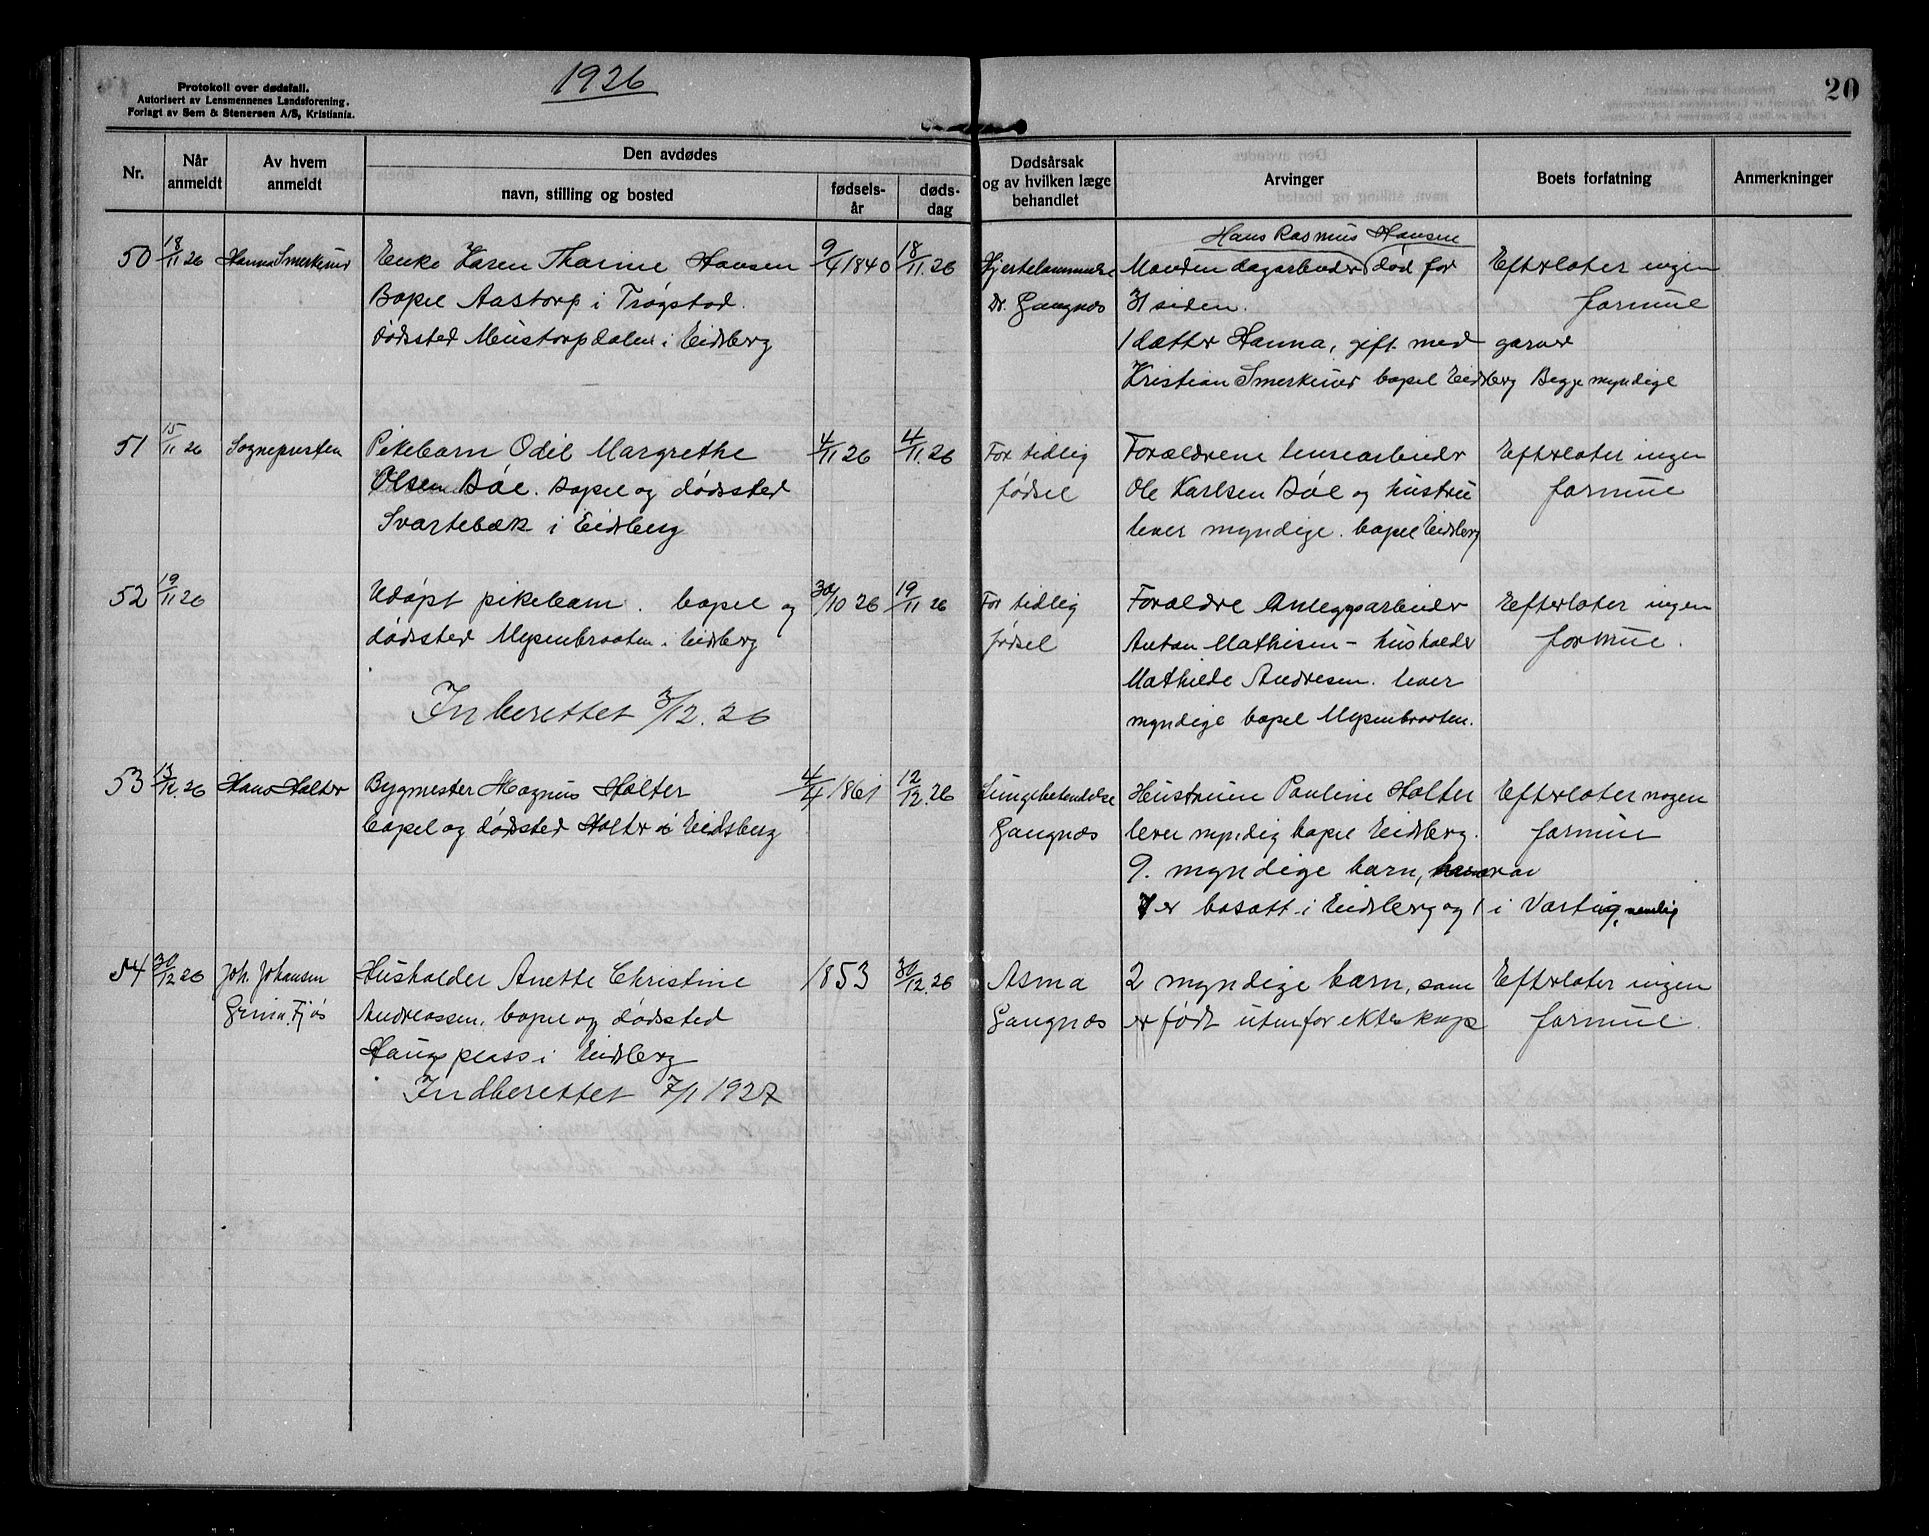 1926
20
Protokoll over dødsfall.
Autorisert av Lensmennenes Landsforening.
Forlagt av Sem & Stenersen A/S, Kristiania.
Nr.
Når anmeldt
Av hvem anmeldt
Den avdødes
navn, stilling og bosted
fødsels-år
døds-dag
Dødsårsak og av hvilken læge behandlet
Arvinger
Boets forfatning
Anmerkninger
Hans Rasmus Hansen
50 18/11 26 Hanna Smerkerud Enke Karen Thorine Hansen 9/4 1840 18/11.26 Hjertelammelse Manden dagarbeider død for Efterlater ingen
Bopel Aastorp i Trøgstad. Dr. Gangnæs 31 siden. formue
dødsted Menstorpdalen i Eidsberg 1 datter Hanna, gift med garver
Kristian Smerkerud bopel Eidsberg Begge myndige
51 15/11 26 Sogneprsten Pikebarn Odil Margrethe 4/11 26 4/11.26 For tidlig Forældrene Efterlater ingen
Olsen Bøe. Bopel og dødsted fødsel Ole Karlsen Bøe og hustru formue
Svartebæk i Eidsberg lever myndige. bopel Eidsberg
52 19/11 26 Udøpt pikebarn. bopel og 30/10 26 19/11 26 For tidlig Forældre Anleggsarbeider Efterlater ingen
dødsted Mysenbraaten i Eidsberg fødsel Anton Mathisen - husholder formue.
Mathilde Andresen. lever
Inberettet 3/12.26
myndige bopel Mysenbraaten.
53 13/12.26 Hans Holter Bygmester Magnus Holter 4/4 1861 12/12.26 Lungebetendelse Hustruen Pauline Holter Efterlater nogen
bopel og dødsted Holter i Eidsberg Gangnæs lever myndig bopel Eidsberg. formue
9. myndige barn, hvorav
7 er bosatt i Eidsberg og 1 i Varteig, nemlig
54 30/12 26 Joh. Johansen Husholder Anette Christine 1853 30/12.26 Asma 2 myndige barn, som Efterlater ingen
Grina. Fjøs Andreassen. bopel og dødsted Gangnæs er født utenfor ekteskap formue.
Haugsplass i Eidsberg
Indberettet 7/1 1927